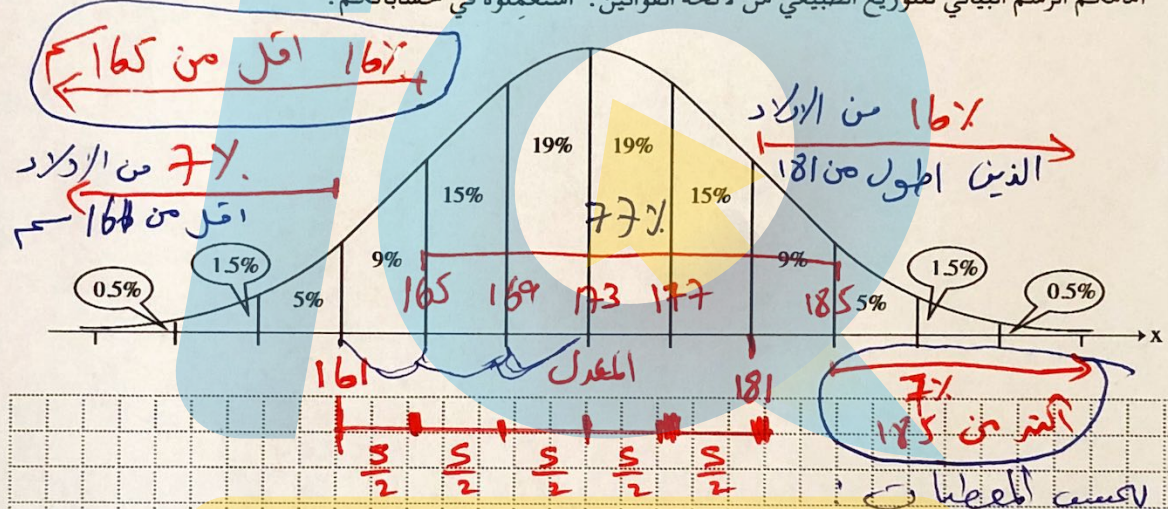 أمامكم الرسم البياني للتوزيع الطبيعي من لائحة القوانين. استعملوه في حساباتكم.
16% اقل من 165 سم
16% من الاولاد
الذين اطول من 181
7% من الاولاد
اقل من 161 سم
19% 19%
15% 15%
77%
9% 9%
0.5% 1.5% 5% 5% 1.5% 0.5%
165 169 173 177 185
x
161 المعدل 181
S/2 S/2 S/2 S/2 S/2
7%
اكثر من 185
المعطيات :